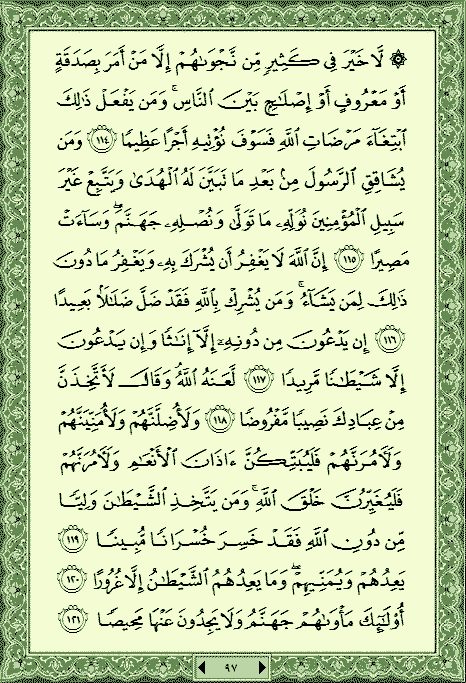 ۞ لَّا خَيْرَ فِى كَثِيرٍ مِّن نَّجْوَىٰهُمْ إِلَّا مَنْ أَمَرَ بِصَدَقَةٍ
أَوْ مَعْرُوفٍ أَوْ إِصْلَٰحٍۭ بَيْنَ ٱلنَّاسِ ۚ وَمَن يَفْعَلْ ذَٰلِكَ
ٱبْتِغَآءَ مَرْضَاتِ ٱللَّهِ فَسَوْفَ نُؤْتِيهِ أَجْرًا عَظِيمًا ١١٤ وَمَن
يُشَاقِقِ ٱلرَّسُولَ مِنۢ بَعْدِ مَا تَبَيَّنَ لَهُ ٱلْهُدَىٰ وَيَتَّبِعْ غَيْرَ
سَبِيلِ ٱلْمُؤْمِنِينَ نُوَلِّهِۦ مَا تَوَلَّىٰ وَنُصْلِهِۦ جَهَنَّمَ ۖ وَسَآءَتْ
مَصِيرًا ١١٥ إِنَّ ٱللَّهَ لَا يَغْفِرُ أَن يُشْرَكَ بِهِۦ وَيَغْفِرُ مَا دُونَ
ذَٰلِكَ لِمَن يَشَآءُ ۚ وَمَن يُشْرِكْ بِٱللَّهِ فَقَدْ ضَلَّ ضَلَٰلًۢا بَعِيدًا
١١٦ إِن يَدْعُونَ مِن دُونِهِۦٓ إِلَّآ إِنَٰثًا وَإِن يَدْعُونَ
إِلَّا شَيْطَٰنًا مَّرِيدًا ١١٧ لَّعَنَهُ ٱللَّهُ ۘ وَقَالَ لَأَتَّخِذَنَّ
مِنْ عِبَادِكَ نَصِيبًا مَّفْرُوضًا ١١٨ وَلَأُضِلَّنَّهُمْ وَلَأُمَنِّيَنَّهُمْ
وَلَءَامُرَنَّهُمْ فَلَيُبَتِّكُنَّ ءَاذَانَ ٱلْأَنْعَٰمِ وَلَءَامُرَنَّهُمْ
فَلَيُغَيِّرُنَّ خَلْقَ ٱللَّهِ ۚ وَمَن يَتَّخِذِ ٱلشَّيْطَٰنَ وَلِيًّا
مِّن دُونِ ٱللَّهِ فَقَدْ خَسِرَ خُسْرَانًا مُّبِينًا ١١٩
يَعِدُهُمْ وَيُمَنِّيهِمْ ۖ وَمَا يَعِدُهُمُ ٱلشَّيْطَٰنُ إِلَّا غُرُورًا ١٢٠
أُو۟لَٰٓئِكَ مَأْوَىٰهُمْ جَهَنَّمُ وَلَا يَجِدُونَ عَنْهَا مَحِيصًا ١٢١
٩٧